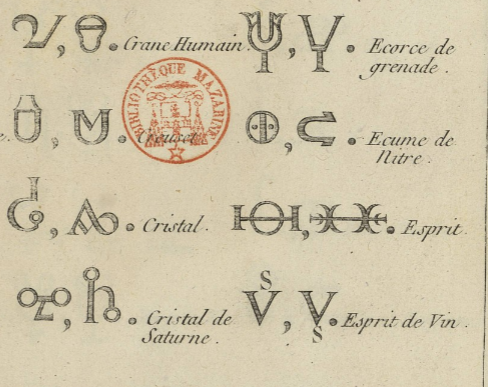 Crane Humain.
Ecorce de
grenade.
BIBLIOTHÈQUE MAZARINE
Creuset
Ecume de
Nitre.
Cristal.
Esprit.
Cristal de
Saturne.
S
S
Esprit de Vin.